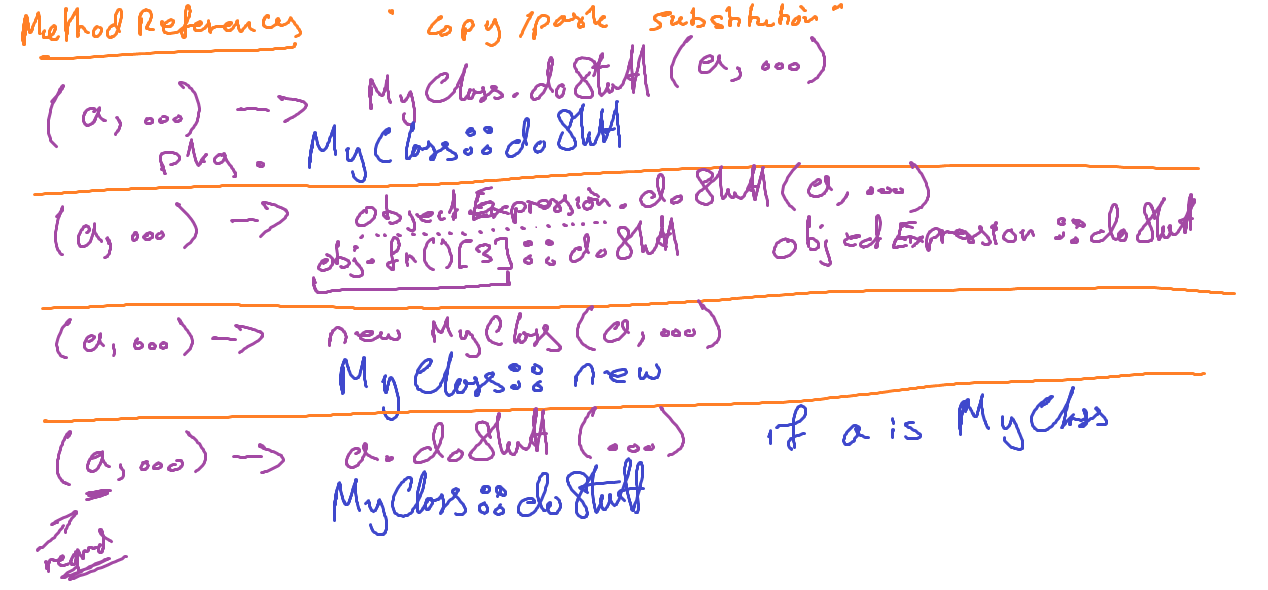 Method References " copy/paste substitution "
(a, ...) -> MyClass.doStuff(a, ...)
pkg. MyClass::doStuff
(a, ...) -> objectExpression.doStuff(a, ...)
obj.fn()[3]::doStuff objectExpression::doStuff
(a, ...) -> new MyClass(a, ...)
MyClass::new
(a, ...) -> a.doStuff(...) if a is MyClass
MyClass::doStuff
reqmd